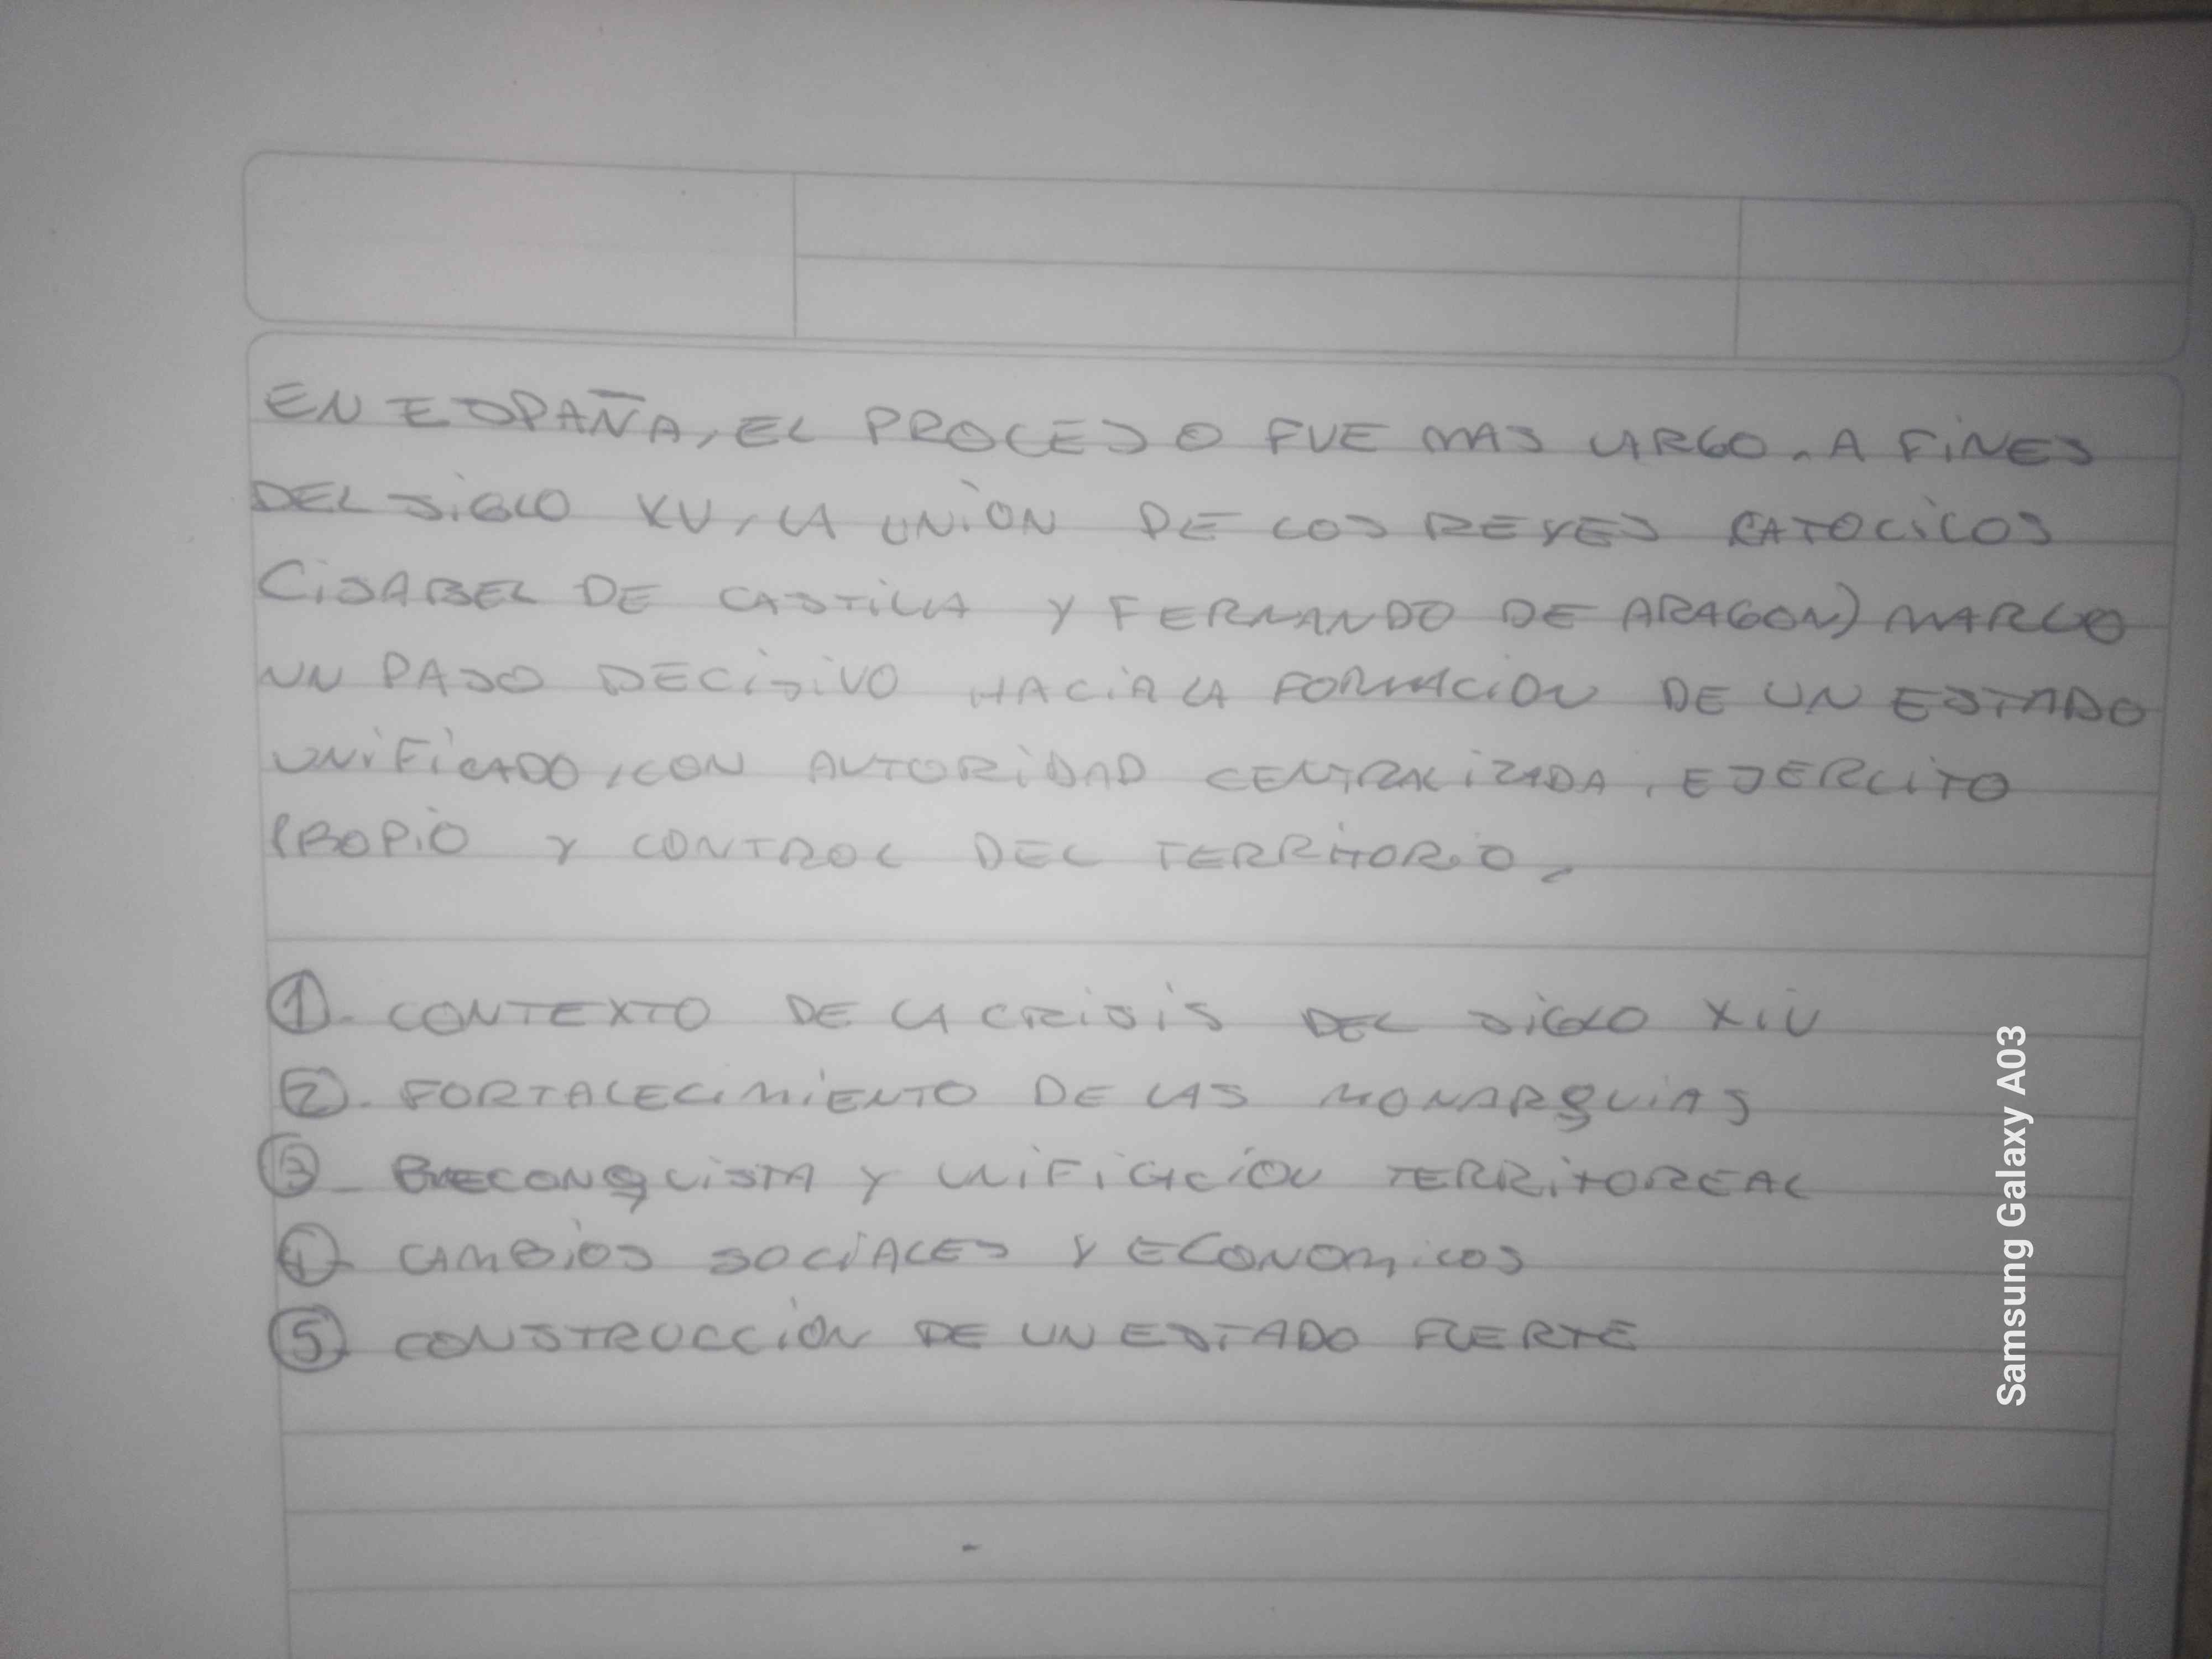 EN ESPAÑA, EL PROCESO FUE MAS LARGO. A FINES
DEL SIGLO XV, LA UNIÓN DE LOS REYES CATOLICOS
(ISABEL DE CASTILLA Y FERNANDO DE ARAGON) MARCO
UN PASO DECISIVO HACIA LA FORMACION DE UN ESTADO
UNIFICADO, CON AUTORIDAD CENTRALIZADA, EJERCITO
PROPIO Y CONTROL DEL TERRITORIO.
1. CONTEXTO DE LA CRISIS DEL SIGLO XIV
2. FORTALECIMIENTO DE LAS MONARQUIAS
3_ RECONQUISTA Y UNIFICACIÓN TERRITOREAL
4_ CAMBIOS SOCIALES Y ECONOMICOS
5_ CONSTRUCCIÓN DE UN ESTADO FUERTE
Samsung Galaxy A03